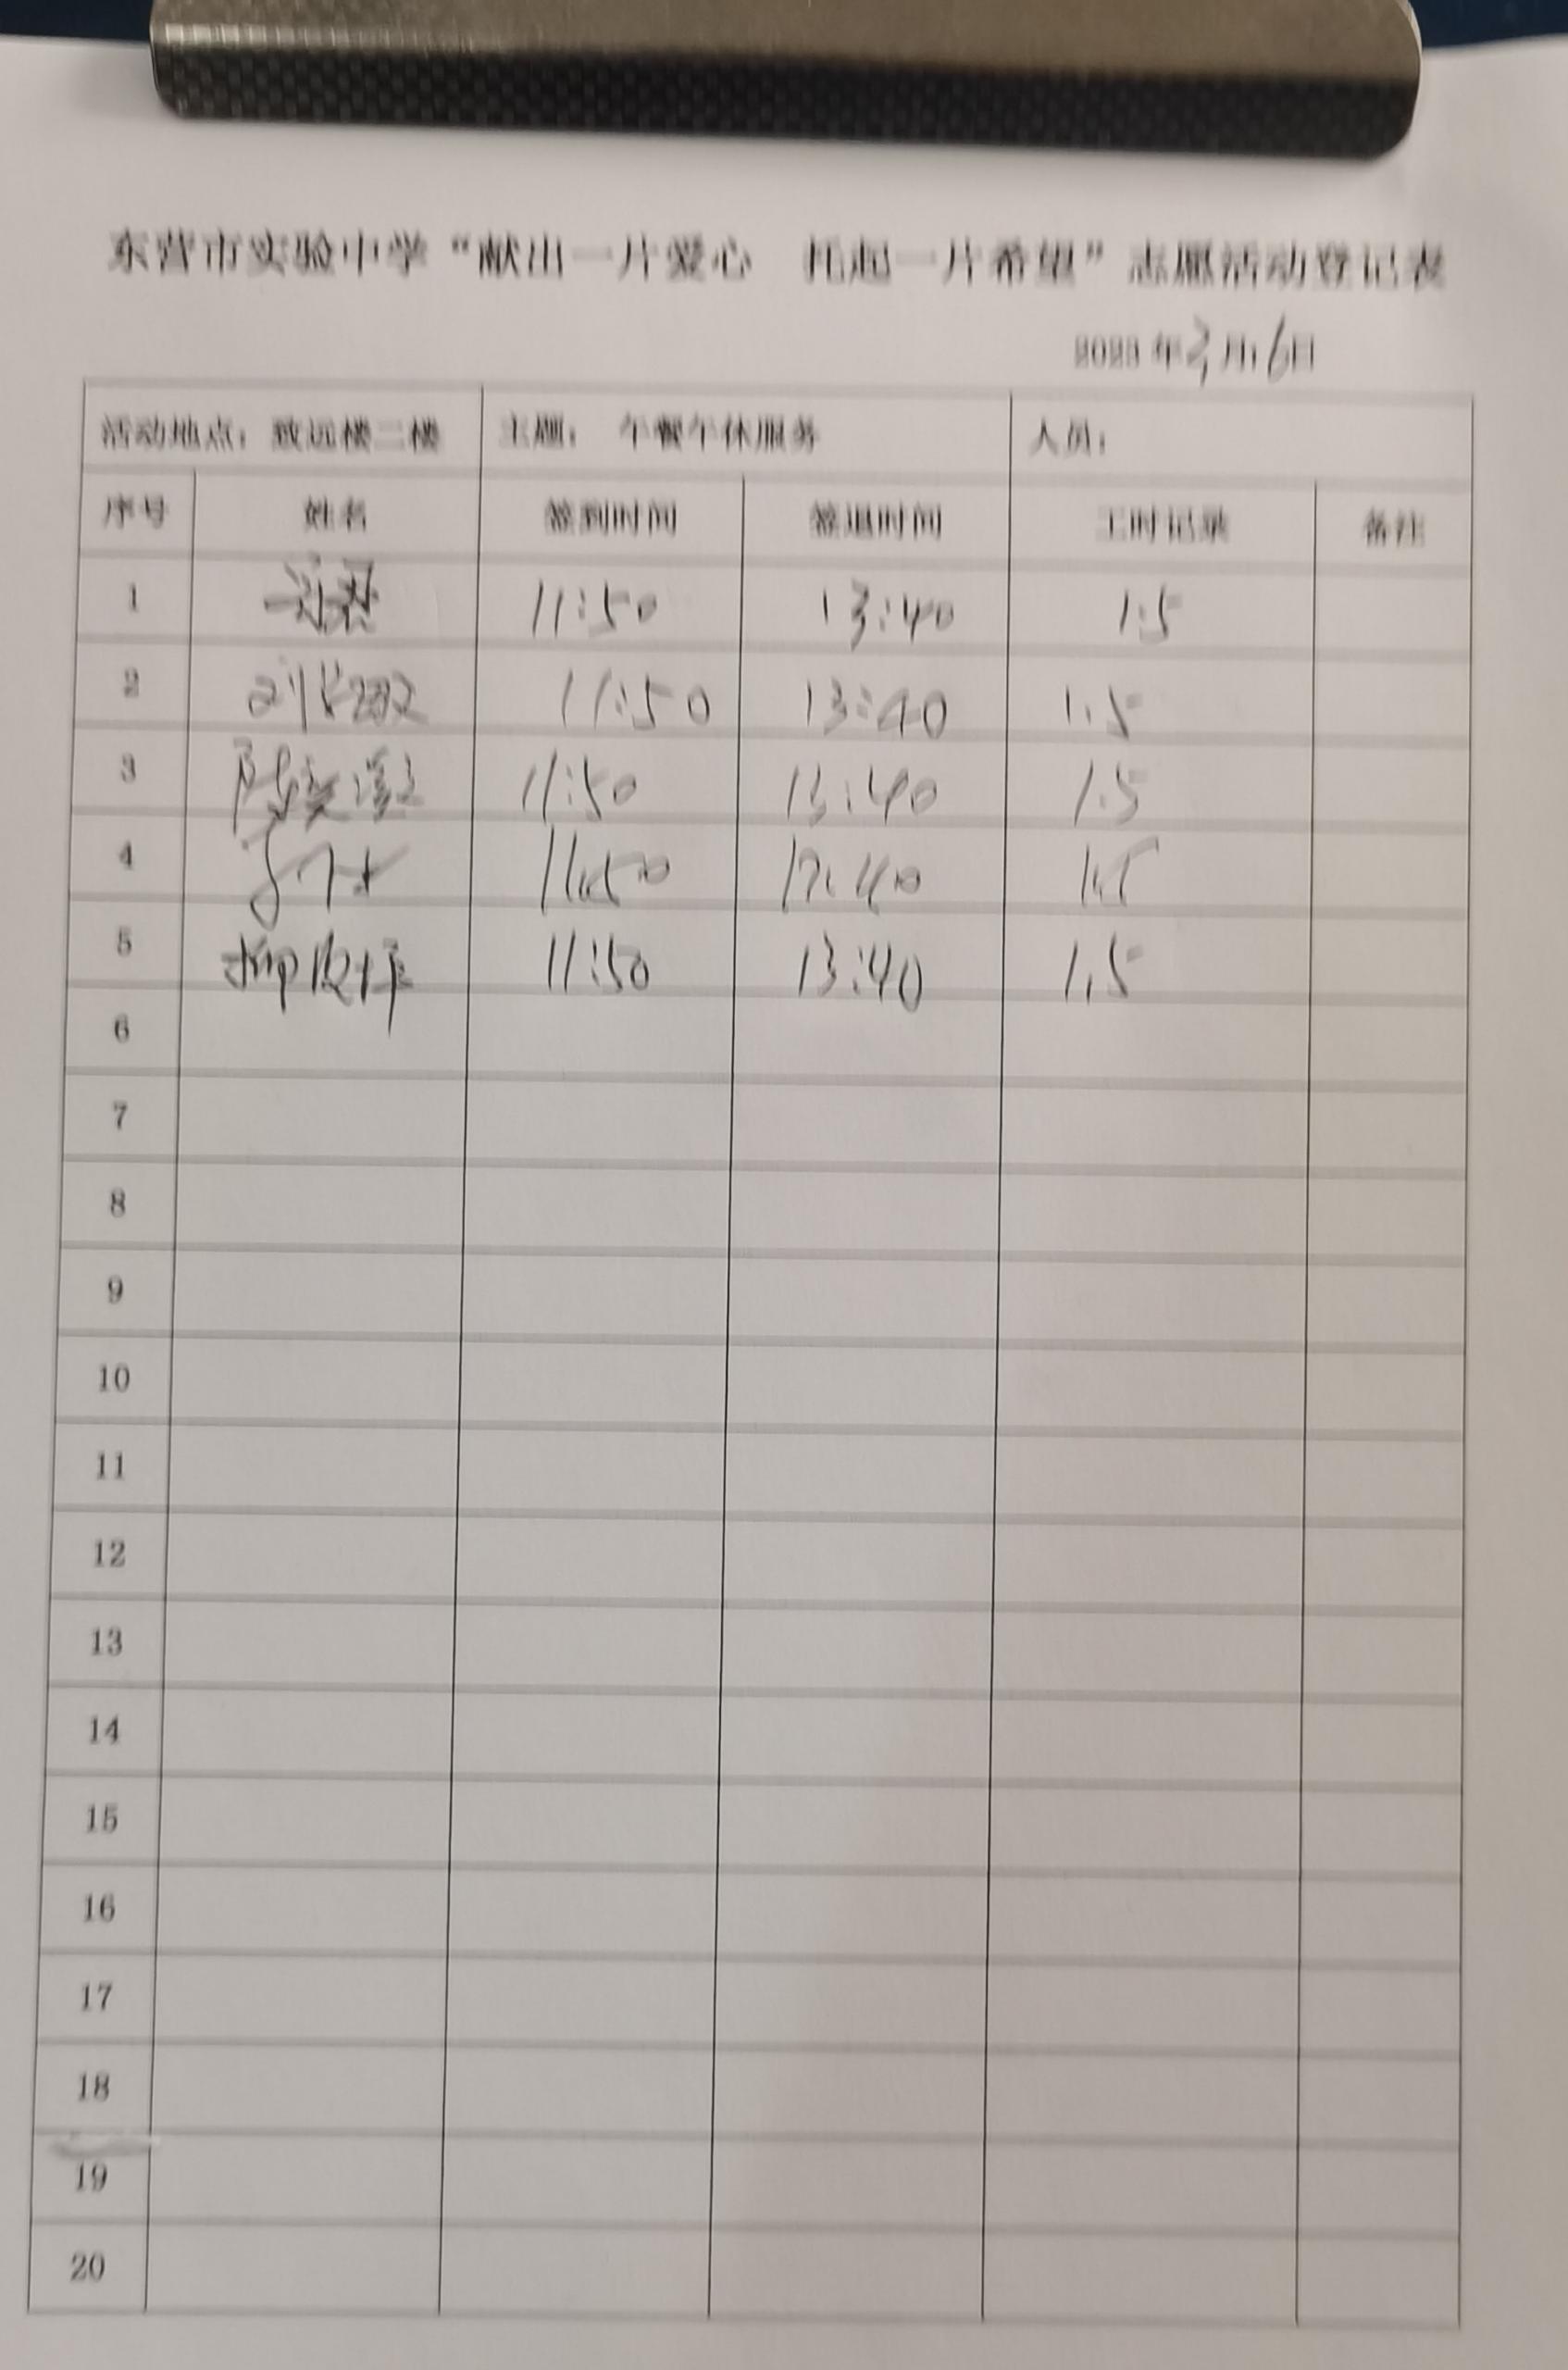 东营市实验中学“献出一片爱心 托起一片希望”志愿活动登记表
2023年3月6日
活动地点：致远楼二楼 主题： 午餐午休服务 人员：
序号 姓名 签到时间 签退时间 工时记录 备注
1 11:50 13:40 1.5
2 刘 11:50 13:40 1.5
3 陈 11:50 13:40 1.5
4 11:50 13:40 1.5
5 柳 11:50 13:40 1.5
6
7
8
9
10
11
12
13
14
15
16
17
18
19
20